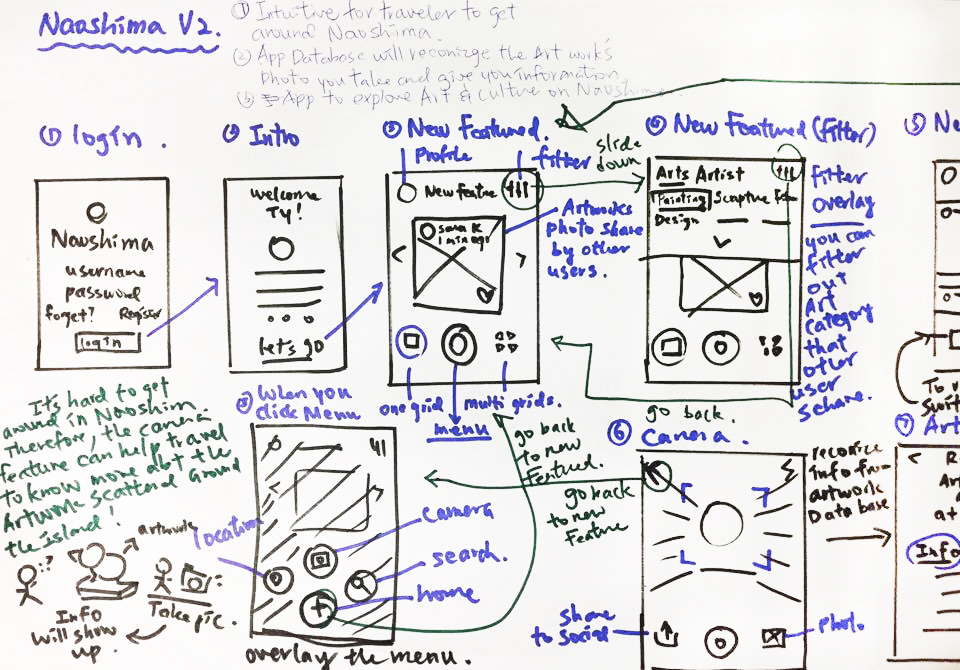 Naoshima V2.
① Intuitive for traveler to get
around Naoshima.
② App Database will reconirze the Art work's
photo you take and give you information.
③ App to explore Art & Culture on Naoshima.
① login.
Naoshima
username
password
forget? Register
login
② Intro
Welcome
Ty!
let's go
③ New Featured.
Profile
filter
New featue
Sara K
1 min ago
Artworks
photo share
by other
users.
one grid
menu
multi grids.
slide
down
④ New Featured (filter)
Arts Artist
Painting Scripture
Design
filter
overlay
you can
filter
out
Art
category
that
other
user
schare.
go back
⑤ Ne
It's hard to get
around in Naoshima
Therefore, the camera
feature can help travel
to know more abt the
Artwork scattered Ground
the island!
artwork
??
Info
will show
up.
Take pic.
When you
click Menu
location
camera
search.
home
overlay the menu.
go back
to new
Featured.
go back
to new
Feature
⑥ Camera.
share
to social
Phot.
reconize
info fro
artwork
Data base
⑦ Art
Info